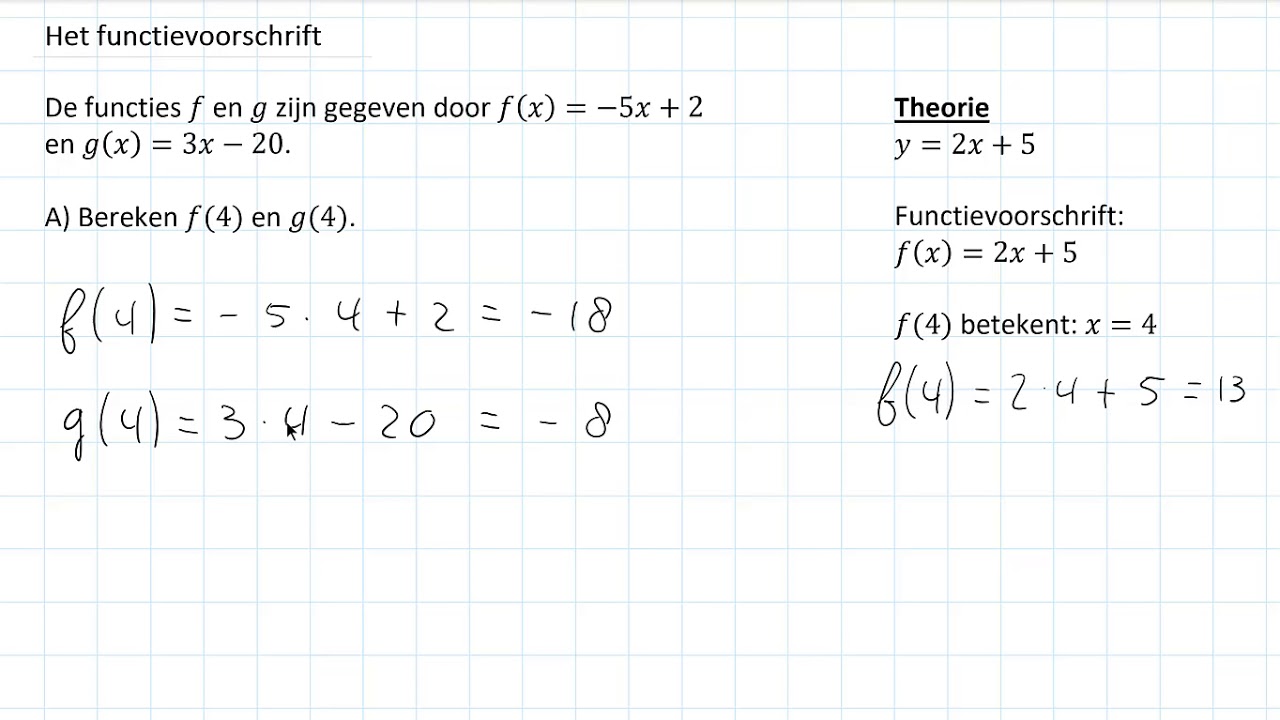 Het functievoorschrift
De functies f en g zijn gegeven door f(x) = −5x + 2
en g(x) = 3x − 20.
A) Bereken f(4) en g(4).
f(4) = - 5 · 4 + 2 = - 18
g(4) = 3 · 4 - 20 = - 8
Theorie
y = 2x + 5
Functievoorschrift:
f(x) = 2x + 5
f(4) betekent: x = 4
f(4) = 2 · 4 + 5 = 13